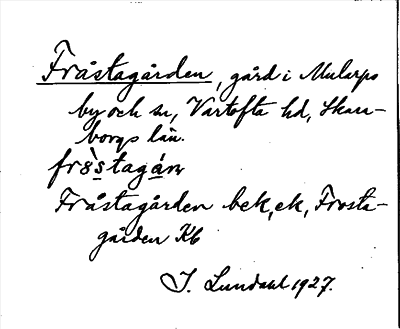 Fråstagården, gård i Mularps
by och sn, Vartofta hd, Skara-
borgs län.
frö̀stagán
Fråstagården bek, ek, Frosta-
gården Kb
J. Lundahl 1927.